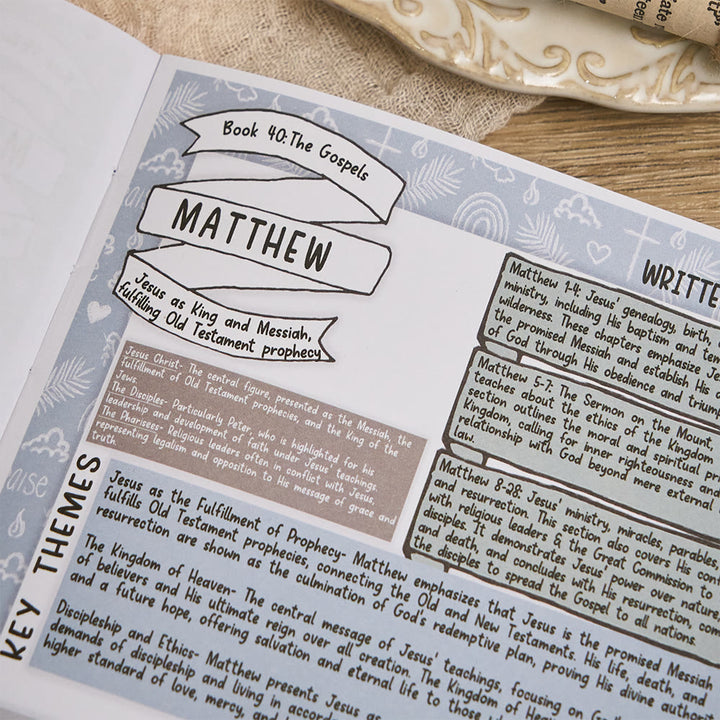 Book 40: The Gospels
MATTHEW
Jesus as King and Messiah,
fulfilling Old Testament prophecy
Jesus Christ- The central figure, presented as the Messiah, the
fulfillment of Old Testament prophecies, and the King of the
Jews.
The Disciples- Particularly Peter, who is highlighted for his
leadership and development of faith under Jesus' teachings.
The Pharisees- Religious leaders often in conflict with Jesus,
representing legalism and opposition to His message of grace and
truth.
WRITTE
Matthew 1-4: Jesus' genealogy, birth,
ministry, including His baptism and
wilderness. These chapters emphasize
the promised Messiah and establish His
of God through His obedience and
Matthew 5-7: The Sermon on the Mount,
teaches about the ethics of the Kingdom
section outlines the moral and spiritual
Kingdom, calling for inner righteousness and
relationship with God beyond mere external
law.
Matthew 8-28: Jesus' ministry, miracles, parables,
and resurrection. This section also covers His
with religious leaders & the Great Commission to
disciples. It demonstrates Jesus' power over nature,
and death, and concludes with His resurrection,
the disciples to spread the Gospel to all nations.
KEY THEMES
Jesus as the Fulfillment of Prophecy- Matthew emphasizes that Jesus is the promised Messiah
fulfills Old Testament prophecies, connecting the Old and New Testaments. His life, death, and
resurrection are shown as the culmination of God's redemptive plan, proving His divine
The Kingdom of Heaven- The central message of Jesus' teachings, focusing on
of believers and His ultimate reign over all creation. The Kingdom of
and a future hope, offering salvation and eternal life to those
Discipleship and Ethics- Matthew presents Jesus as
demands of discipleship and living in
higher standard of love, mercy, and
aise